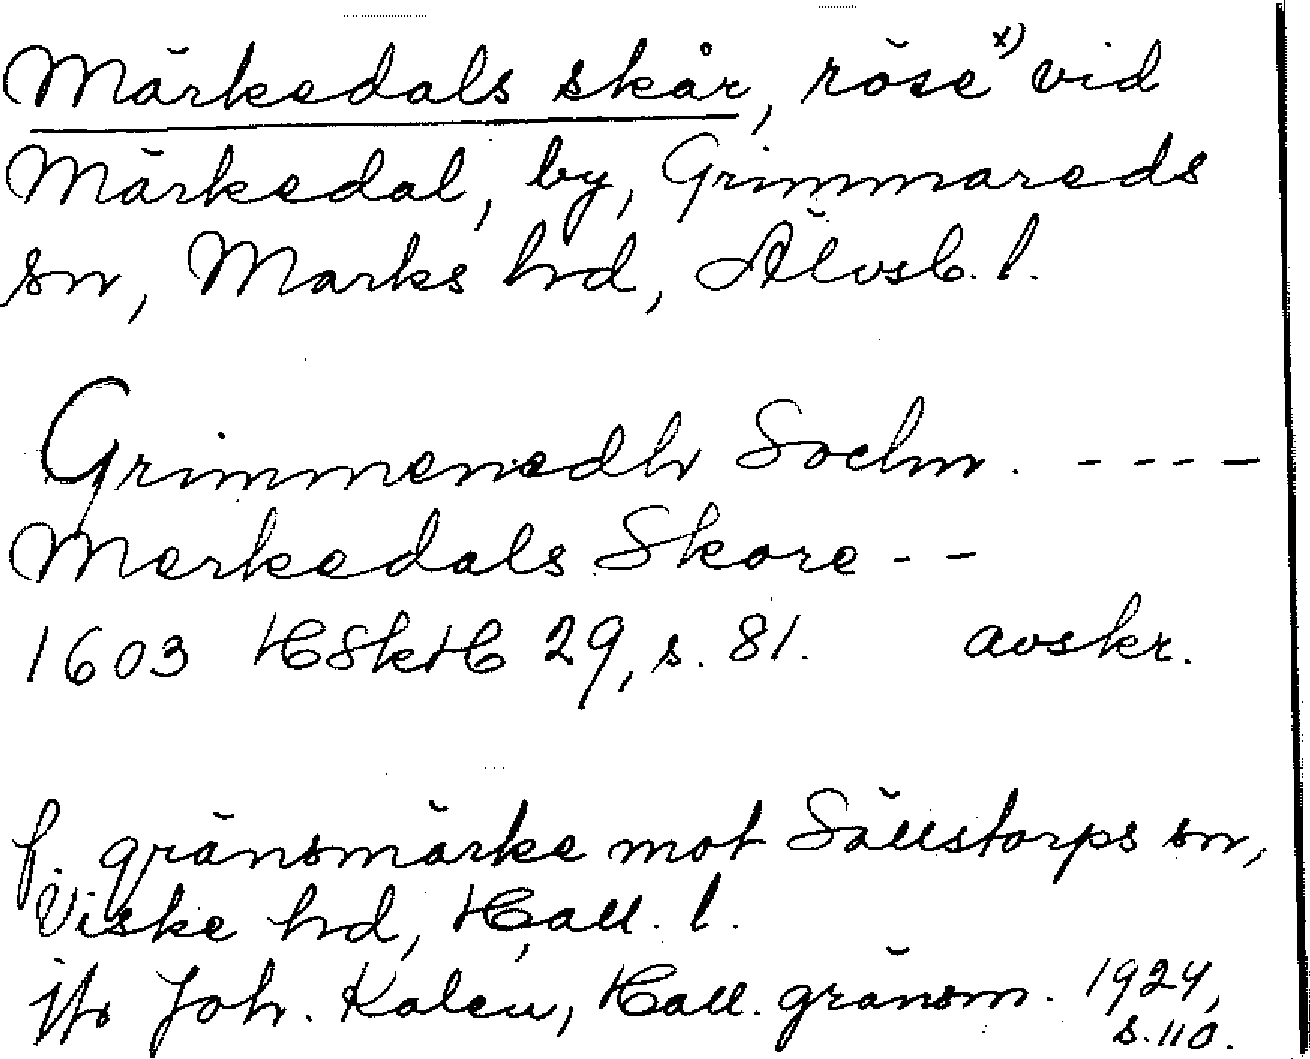 Märkedals skår, röse x) vid
Märkedal, by, Grimmareds
sn, Marks hd, Älvsb. l.
Grimmenedh Sochn. ----
Merkedals Skore --
1603 HSkH 29, s. 81. avskr.
f. gränsmärke mot Sällstorps sn,
Viske hd, Hall. l.
jfr Joh. Kalén, Hall. gränsm. 1924,
s. 110.